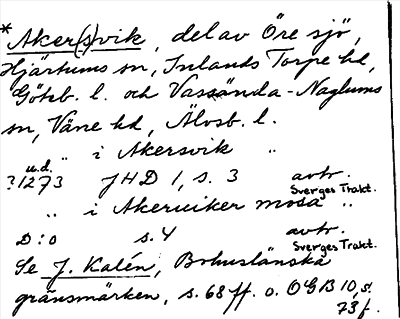 * Aker(s)vik, del av Öre sjö,
Hjärtums sn, Inlands Torpe hd,
Göteb. l. och Vassända-Naglums
sn, Väne hd, Älvsb. l.
" i Akersvik "
u.d.
?1273 JHD 1, s. 3 avtr.
Sverges Trakt.
" i Akeruiker mosa "
D:o s. 4 avtr.
Sverges Trakt.
Se J. Kalén, Bohuslänska
gränsmärken, s. 68 ff. o. OGB 10, s.
73 f.